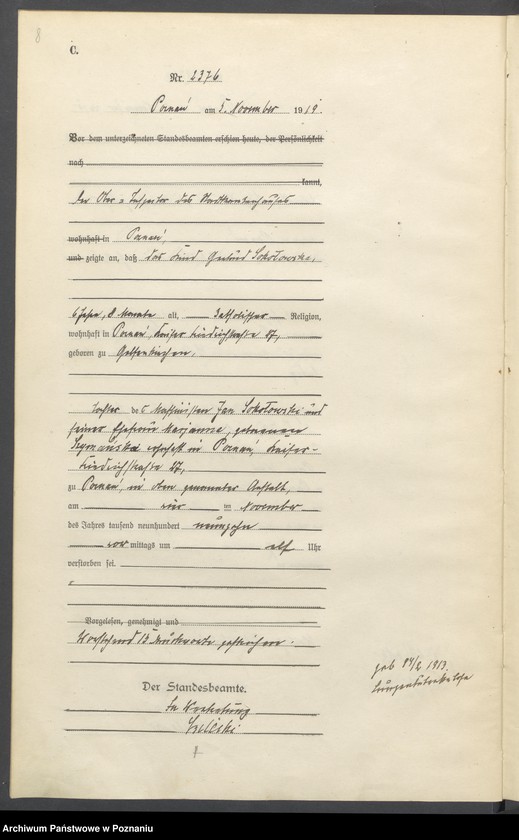 8
C.
Nr. 2376
Poznań am 5. November 1919.
Vor dem unterzeichneten Standesbeamten erschien heute, der Persönlichkeit
nach
kannt,
Der Ober-Inspektor des Stadtkrankenhauses
wohnhaft in Poznań,
und zeigte an, daß das Kind Gertrud Sokołowska,
6 Jahre, 8 Monate alt, katholischer Religion,
wohnhaft in Poznań, Kaiser Friedrichstraße 27,
geboren zu Gelsenkirchen,
Tochter des Maschinisten Jan Sokołowski und
seiner Ehefrau Marjanna, geborenen
Szymańska wohnhaft in Poznań, Kaiser-
Friedrichstraße 27,
zu Poznań, in oben genannter Anstalt,
am vier ten November
des Jahres tausend neunhundert neunzehn
vor mittags um elf Uhr
verstorben sei.
Vorgelesen, genehmigt und
Vorstehend 13 Druckworte gestrichen.
Der Standesbeamte.
In Vertretung
geb 1913.
Lungentuberkulose
Archiwum Państwowe w Poznaniu